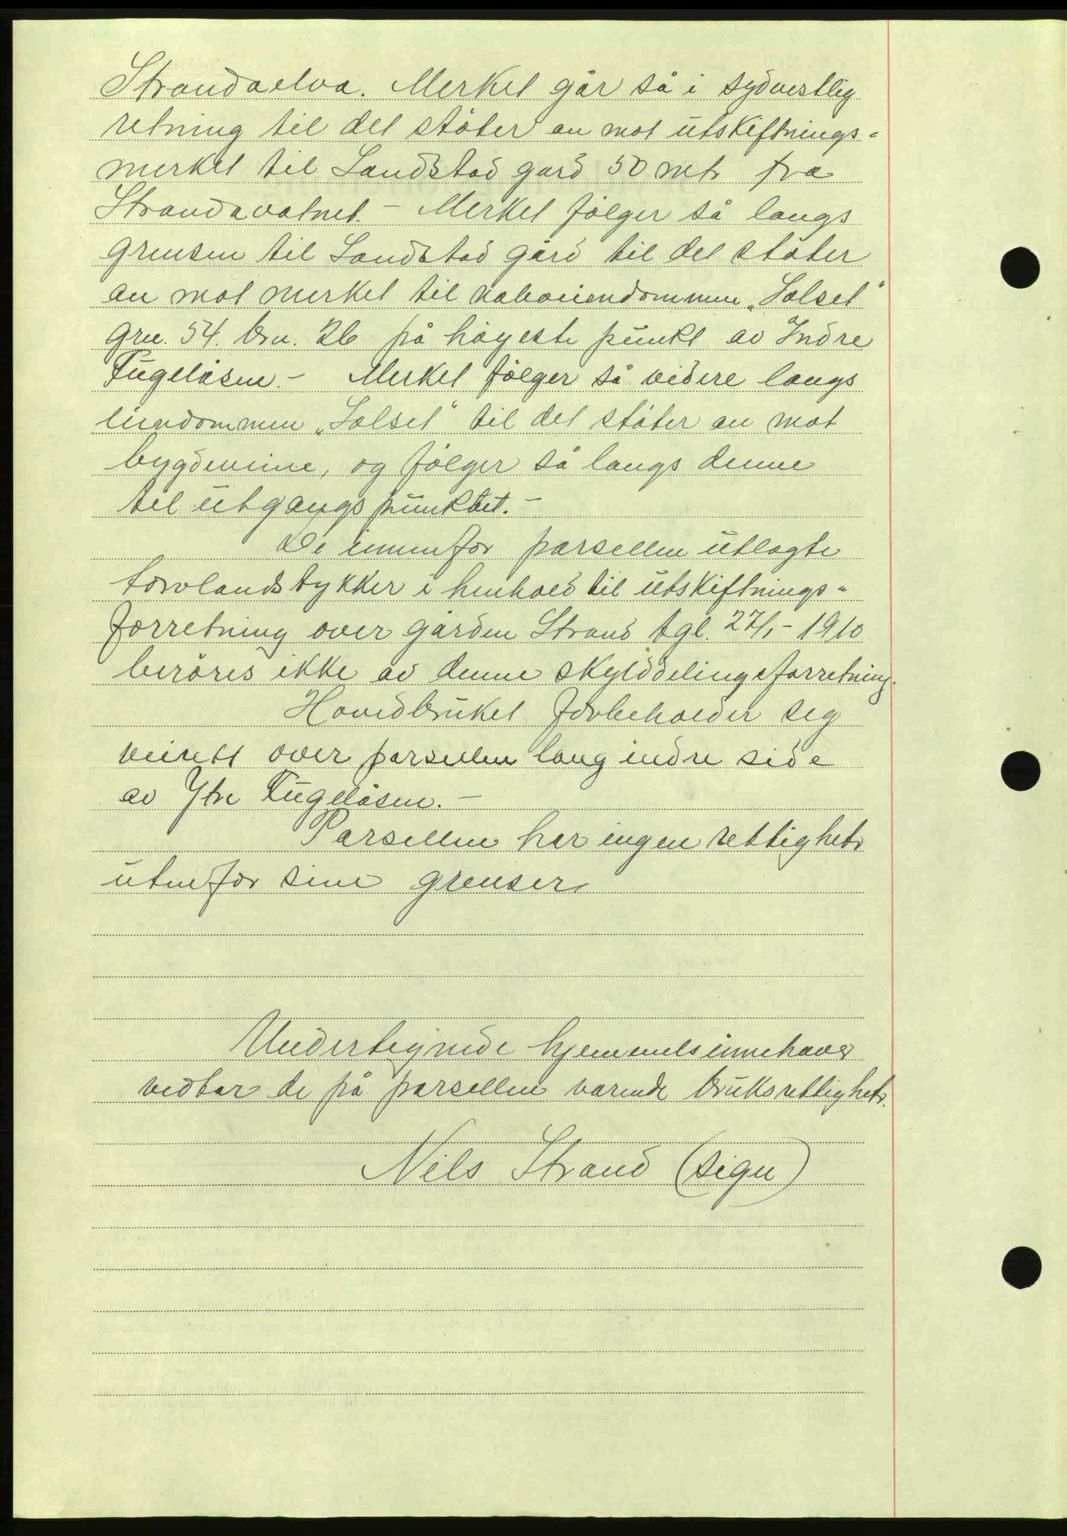 Strandaelva. Merket går så i sydvestlig
retning til det støter an mot utskiftnings-
merket til Landstad gard 50 mtr fra
Strandavatnet. – Merket følger så langs
grensen til Landstad gård til det støter
an mot merket til naboeiendommen „Solset"
grn. 54. brn. 26 på høyeste punkt av Indre
Fugelåsen. – Merket følger så videre langs
eiendommen „Solset" til det støter an mot
bygdeveine, og følger så langs denne
til utgangspunktet. –
De innenfor parsellen utlagte
torvlandstykker i henhold til utskiftnings-
forretning over gården Strand tgl. 27/1 – 1910
berøres ikke av denne skylddelingsforretning.
Hovedbruket forbeholder seg
veirett over parsellen lang indre side
av Ytre Fugelåsen. –
Parsellen har ingen rettigheter
utenfor sine grenser
Undertegnede hjemmelsinnehaver
vedtar de på parsellen værende bruksrettigheter.
Nils Strand (sign)